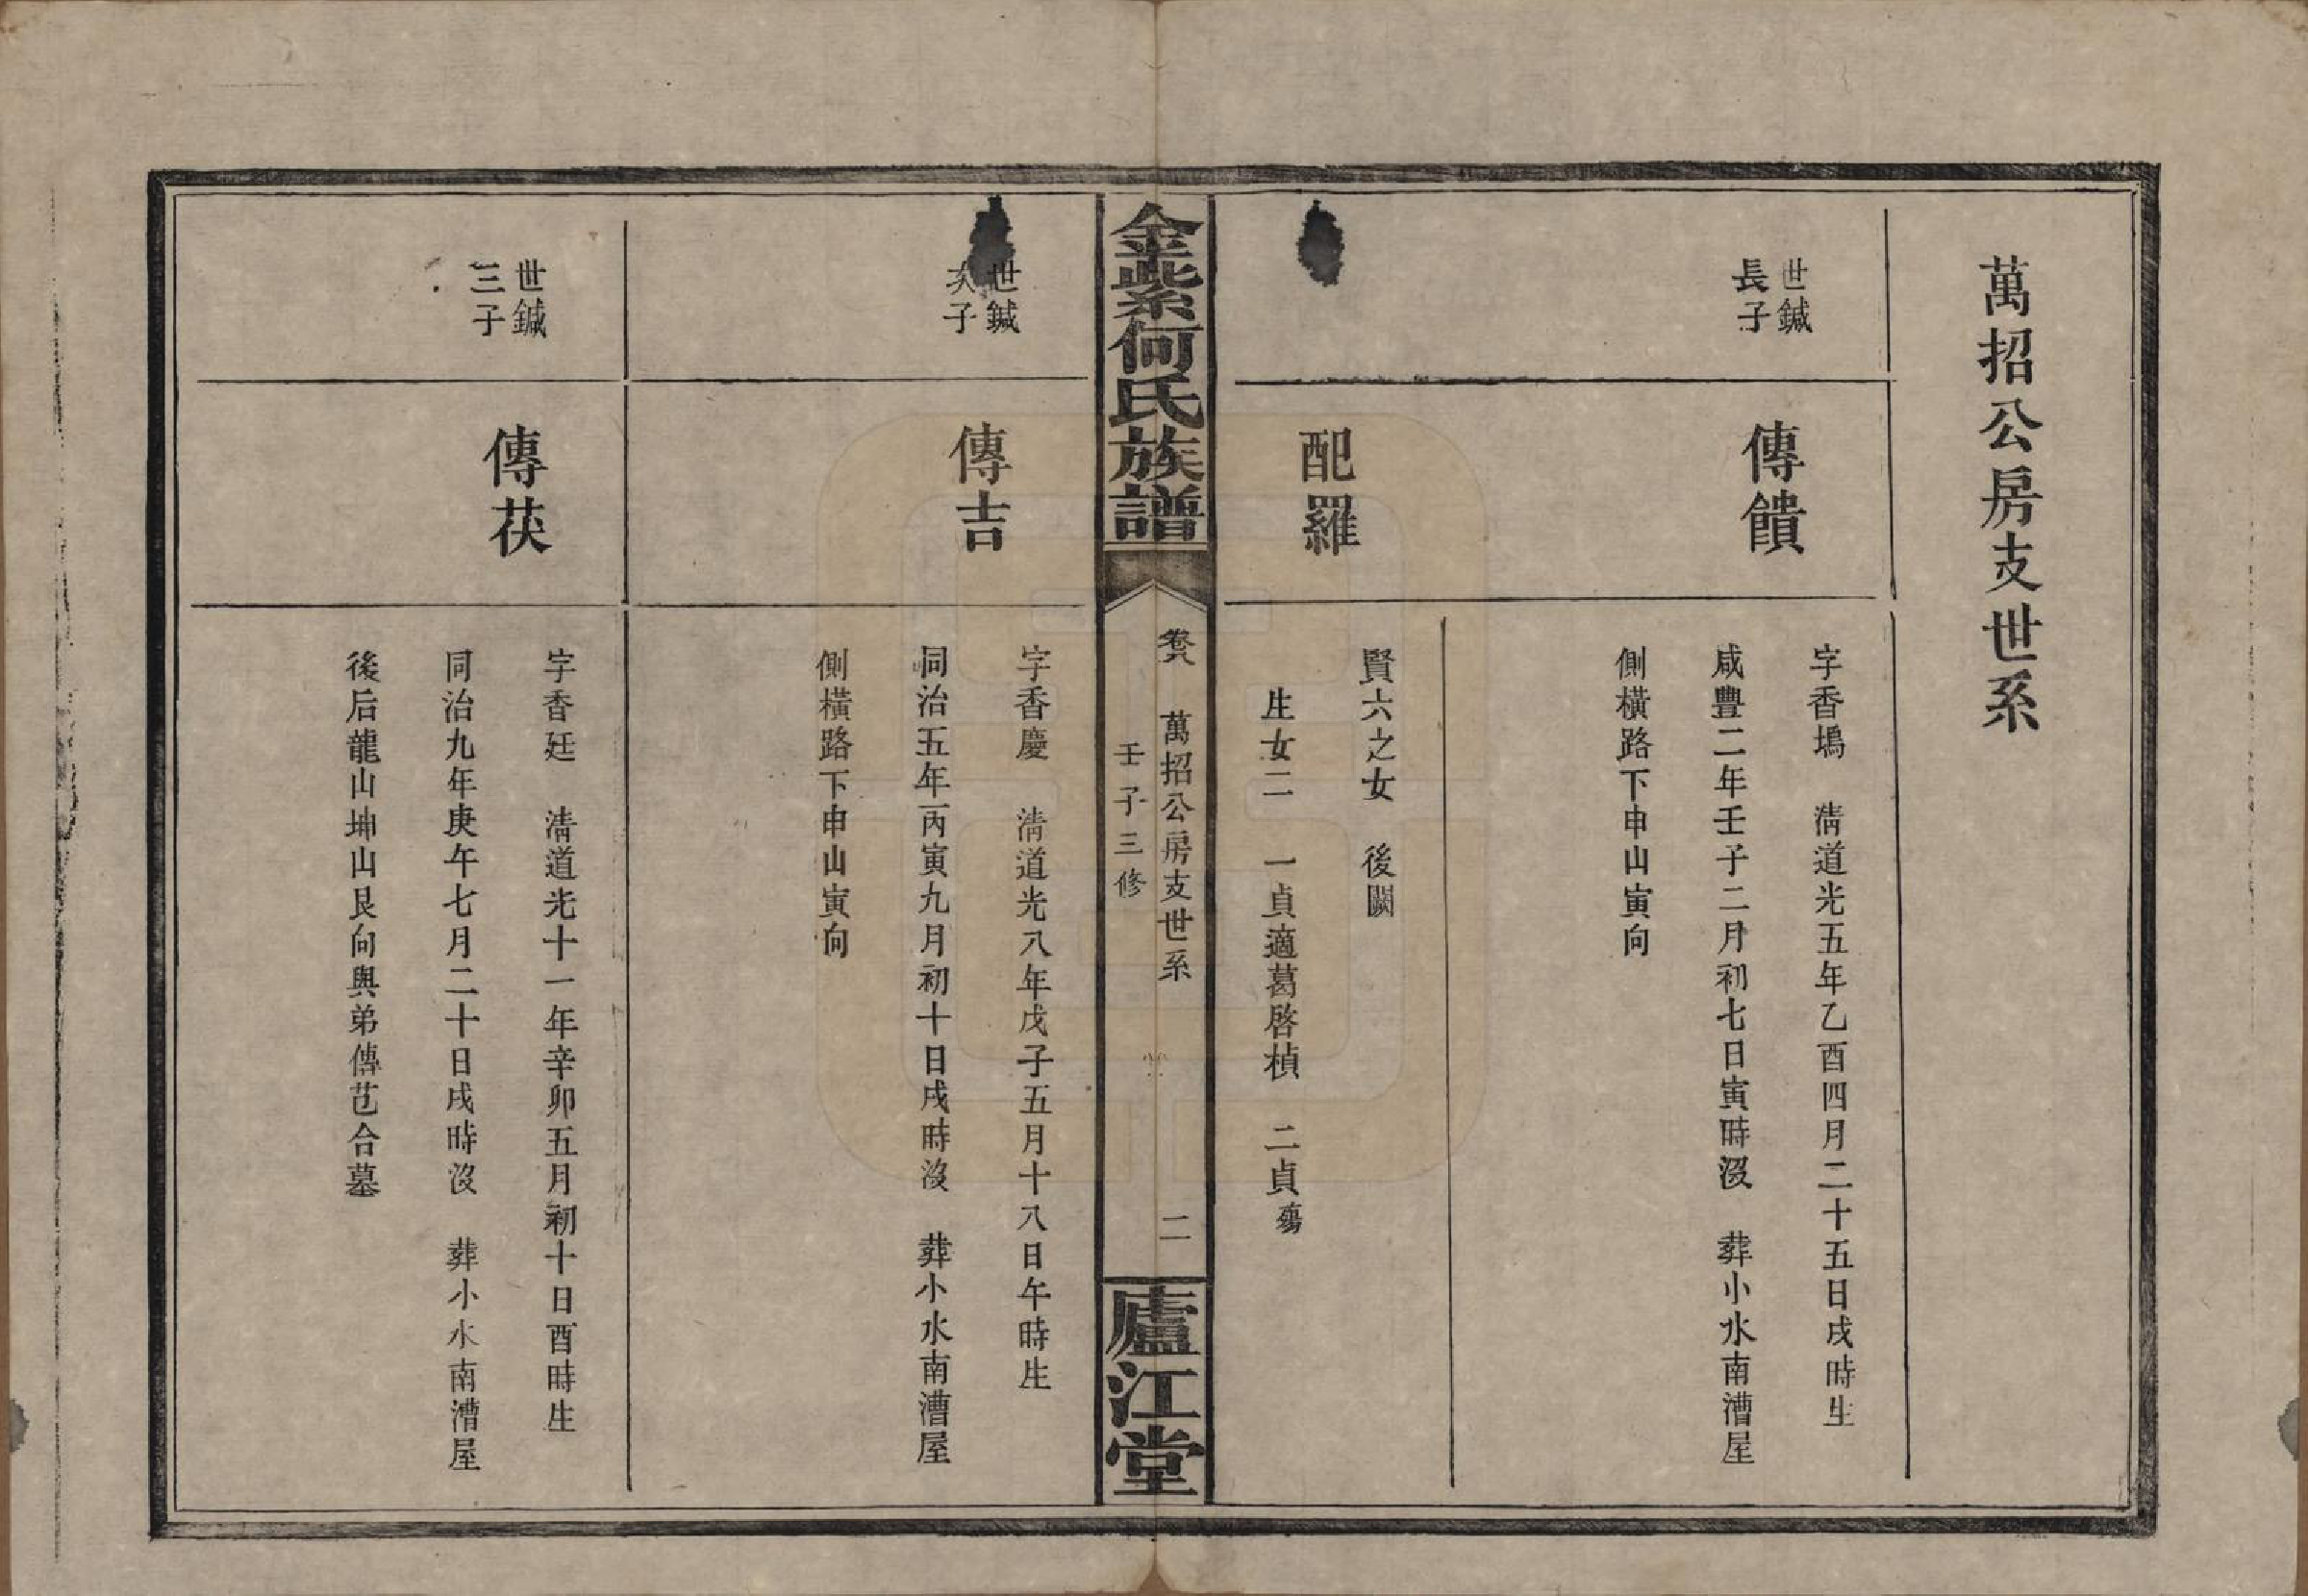 萬招公房支世系
世鍼
長子
傳饋
字香塢　淸道光五年乙酉四月二十五日戌時生
咸豐二年壬子二月初七日寅時沒　葬小水南漕屋
側橫路下申山寅向
配羅
賢六之女　後闕
生女二　一貞適葛啓楨　二貞殤
金紫何氏族譜
卷八　萬招公房支世系　二
壬子三修
廬江堂
世鍼
次子
傳吉
字香慶　淸道光八年戊子五月十八日午時生
同治五年丙寅九月初十日戌時沒　葬小水南漕屋
側橫路下申山寅向
世鍼
三子
傳茯
字香廷　淸道光十一年辛卯五月初十日酉時生
同治九年庚午七月二十日戌時沒　葬小水南漕屋
後后龍山坤山艮向與弟傳芑合墓